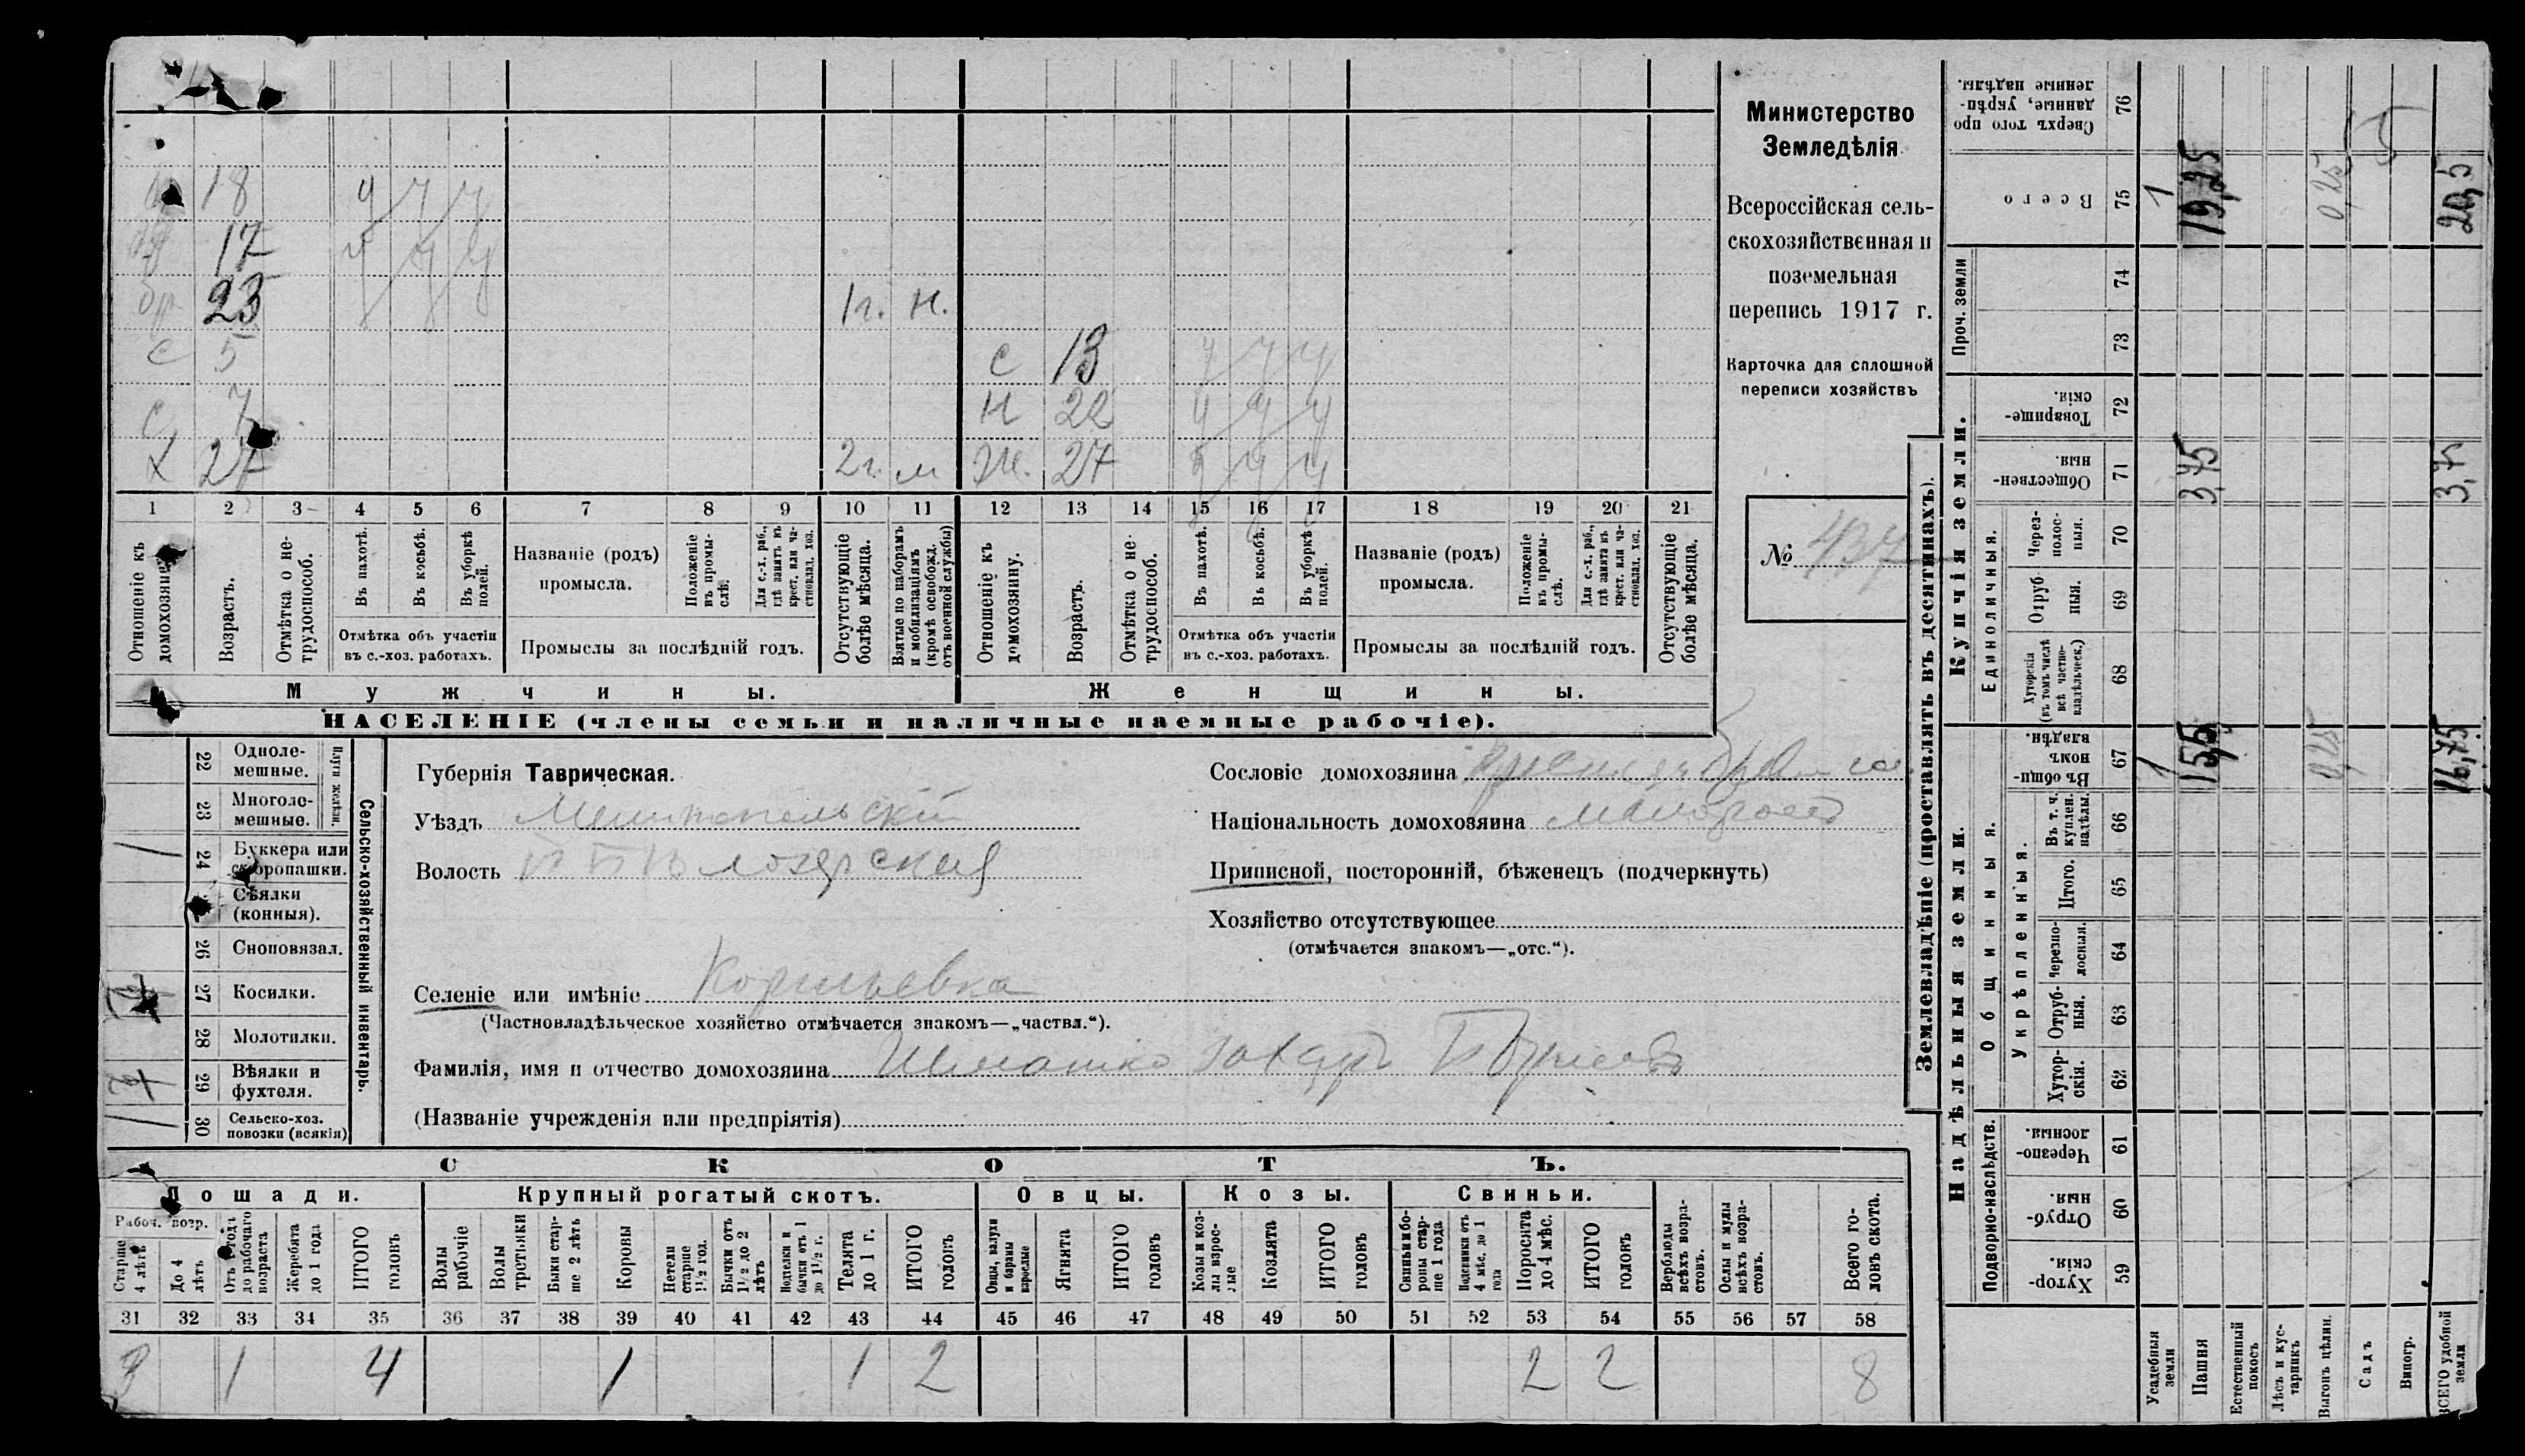 18 у у у
17 у у у
бр 23 1 г. н.
с 5 с 13 у у у
с 7 н 22 у у у
х 27 2 г. м ж. 27 у у у
1 2 3 4 5 6 7 8 9 10 11 12 13 14 15 16 17 18 19 20 21
Отношеніе къ домохозяину.
Возрастъ.
Отмѣтка о нетрудоспособ.
Въ пахотѣ.
Въ косьбѣ.
Въ уборкѣ полей.
Отмѣтка объ участіи
въ с.-хоз. работахъ.
Названіе (родъ)
промысла.
Положеніе въ промыслѣ.
Для с.-х. раб., гдѣ занятъ въ крест. или частновлад. хоз.
Промыслы за послѣдній годъ.
Отсутствующіе болѣе мѣсяца.
Взятые по наборамъ и мобилизаціямъ (кромѣ освобожд. отъ военной службы)
Отношеніе къ домохозяину.
Возрастъ.
Отмѣтка о нетрудоспособ.
Въ пахотѣ.
Въ косьбѣ.
Въ уборкѣ полей.
Отмѣтка объ участіи
въ с.-хоз. работахъ.
Названіе (родъ)
промысла.
Положеніе въ промыслѣ.
Для с.-х. раб., гдѣ занята въ крест. или частновлад. хоз.
Промыслы за послѣдній годъ.
Отсутствующіе болѣе мѣсяца.
Мужчины. Женщины.
НАСЕЛЕНІЕ (члены семьи и наличные наемные рабочіе).
Министерство
Земледѣлія
Всероссійская сель-
скохозяйственная и
поземельная
перепись 1917 г.
Карточка для сплошной
переписи хозяйствъ
№ 437
22 Одноле-
мешные.
23 Многоле-
мешные.
Плуги желѣзн.
24 Буккера или
скоропашки. 1
Сѣялки
(конныя).
26 Сноповязал.
27 Косилки.
28 Молотилки.
29 Вѣялки и
фухтеля.
30 Сельско-хоз.
повозки (всякія) 1
Сельско-хозяйственный инвентарь.
Губернія Таврическая.
Уѣздъ Мелитопольскій
Волость Бѣлозерская
Селеніе или имѣніе
(Частновладѣльческое хозяйство отмѣчается знакомъ—„частвл.“).
Фамилія, имя и отчество домохозяина Шматко Захаръ
(Названіе учрежденія или предпріятія)
Сословіе домохозяина
Національность домохозяина малороссъ
Приписной, посторонній, бѣженецъ (подчеркнуть)
Хозяйство отсутствующее
(отмѣчается знакомъ—„отс.“).
СКОТЪ.
Лошади. Крупный рогатый скотъ. Овцы. Козы. Свиньи.
Рабоч. возр.
Старше 4 лѣтъ
До 4 лѣтъ
Отъ 1 года до рабочаго возраста
Жеребята до 1 года
ИТОГО головъ
Волы рабочіе
Волы третьяки
Быки старше 2 лѣтъ
Коровы
Нетели старше 1½ год.
Бычки отъ 1½ до 2 лѣтъ
Подтелки и бычки отъ 1 до 1½ г.
Телята до 1 г.
ИТОГО головъ
Овцы, валухи и бараны взрослые
Ягнята
ИТОГО головъ
Козы и козлы взрослые
Козлята
ИТОГО головъ
Свиньи и бороны старше 1 года
Подсвинки отъ 4 мѣс. до 1 года
Поросята до 4 мѣс.
ИТОГО головъ
Верблюды всѣхъ возрастовъ.
Ослы и мулы всѣхъ возрастовъ.
Всего головъ скота.
31 32 33 34 35 36 37 38 39 40 41 42 43 44 45 46 47 48 49 50 51 52 53 54 55 56 57 58
3 1 4 1 1 2 2 2 8
Землевладѣніе (проставлять въ десятинахъ).
Сверхъ того проданные, укрѣпленные надѣлы. 76
Всего 75 1 19,25 0,25 20,5
Проч. земли 74 73
Купчія земли.
Товарищескія. 72
Общественныя. 71 3,75 3,75
Единоличныя.
Черезполосныя. 70
Отрубныя. 69
Хуторскія (въ томъ числѣ всѣ частновладѣльческ.) 68
Надѣльныя земли.
Общинныя.
Въ общиномъ владѣн. 67 1 15,5 0,25 16,75
Укрѣпленныя.
Въ т. ч. куплен. надѣлы. 66
Итого. 65
Черезполосныя. 64
Отрубныя. 63
Хуторскія. 62
Подворно-наслѣдств.
Черезполосныя. 61
Отрубныя. 60
Хуторскія. 59
Усадебныя земли
Пашня
Естественный покосъ
Лѣсъ и кустарникъ
Выгонъ цѣлин.
Садъ
Виногр.
ВСЕГО удобной земли